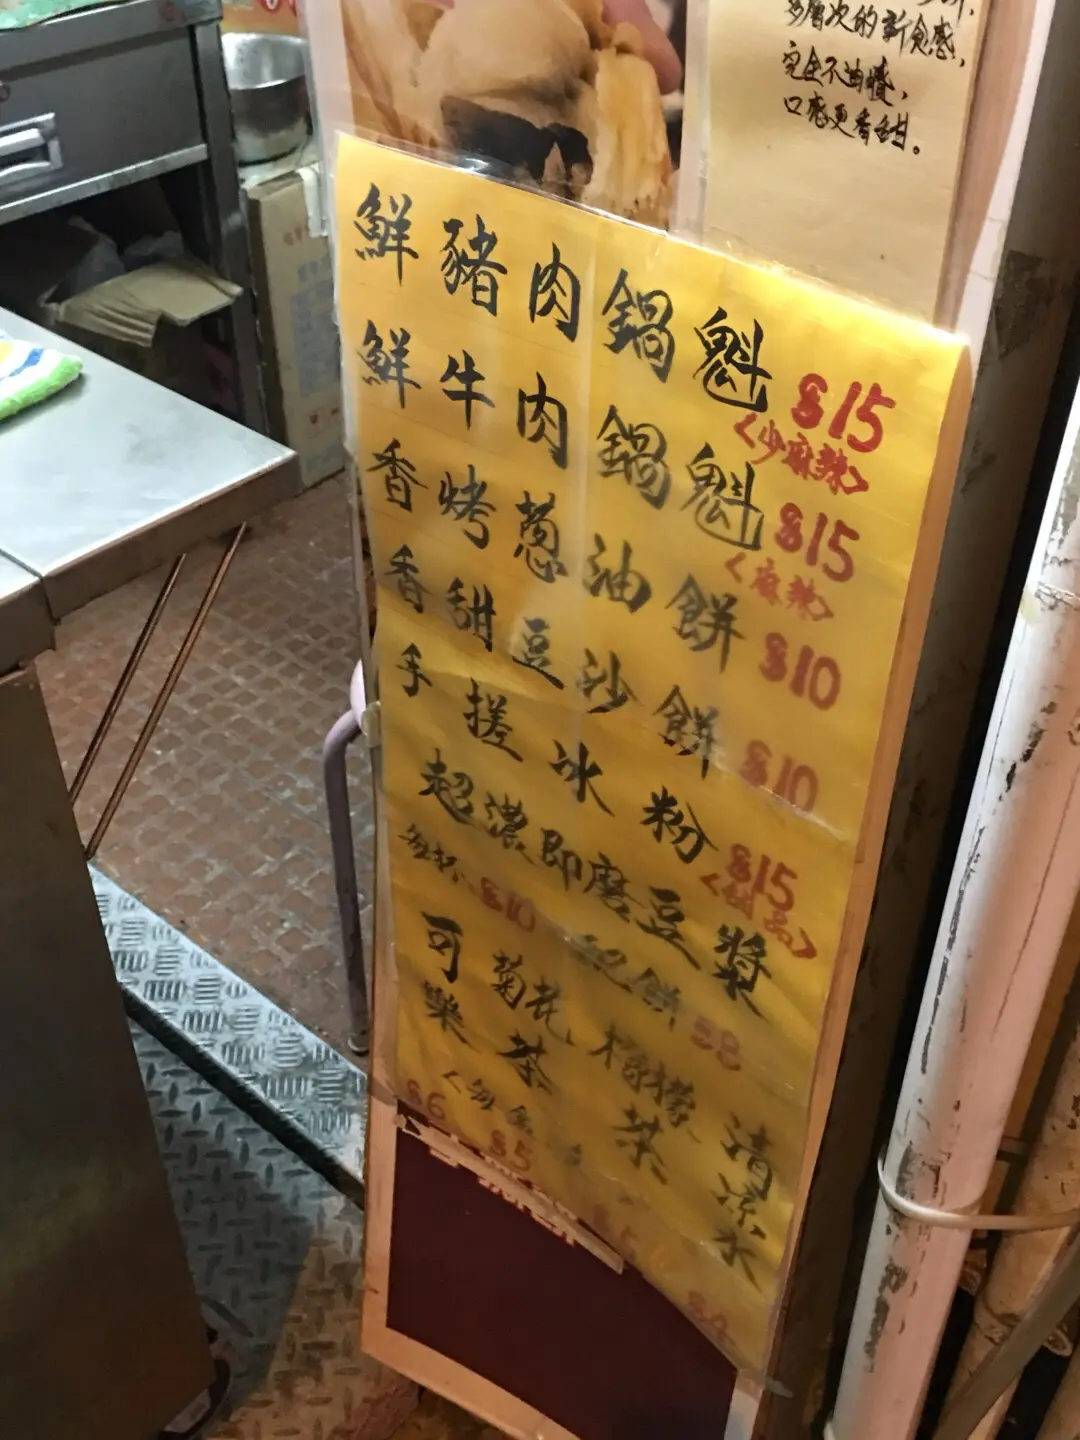 多層次的新食感，
完全不油膩，
口感更香甜。
鮮豬肉鍋魁 $15
<少麻辣>
鮮牛肉鍋魁 $15
<麻辣>
香烤葱油餅 $10
香甜豆沙餅 $10
手搓冰粉 $15
<甜品>
超濃即磨豆漿
$10
配餅 $8
可樂 $6
菊花茶 $5
檸檬茶
清涼水 $4